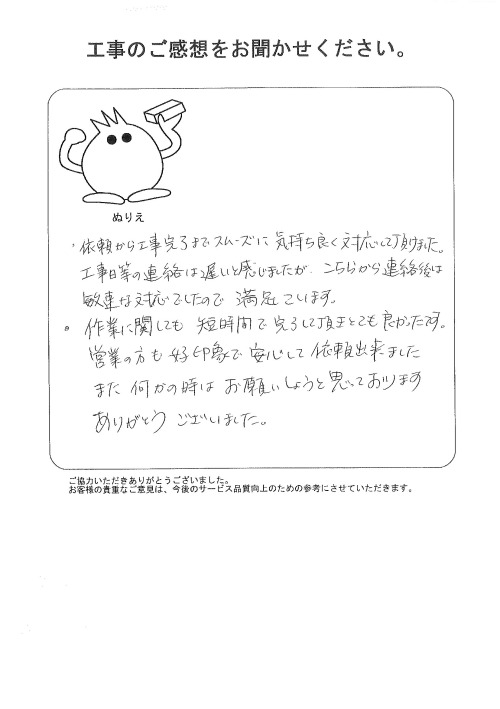 工事のご感想をお聞かせください。
ぬりえ
・依頼から工事完了までスムーズに気持ち良く対応して頂けました。
工事日等の連絡は遅いと感じましたが、こちらから連絡後は
敏速な対応でしたので満足ています。
・作業に関しても短時間で完了して頂きとても良かったです。
営業の方も好印象で安心して依頼出来ました
また何かの時はお願いしようと思っております
ありがとうございました。
ご協力いただきありがとうございました。
お客様の貴重なご意見は、今後のサービス品質向上のための参考にさせていただきます。